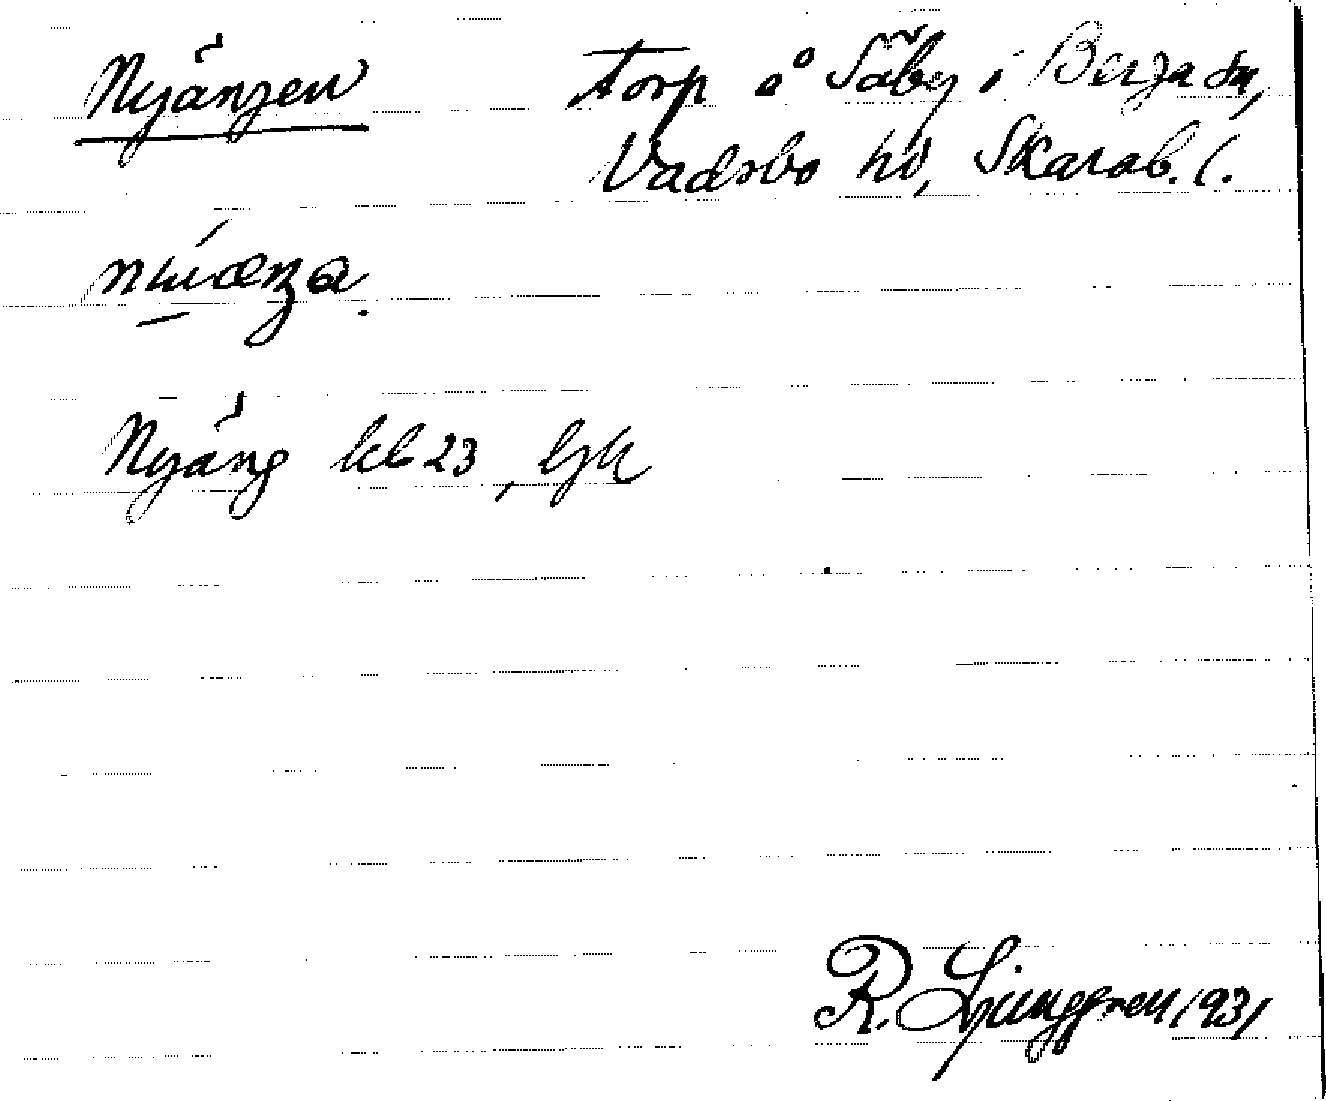 Nyängen Torp å Säby i Berga sn,
Vadsbo hd, Skarab. l.
Nyäng kb 23, Gk
R. Ljunggren 1931